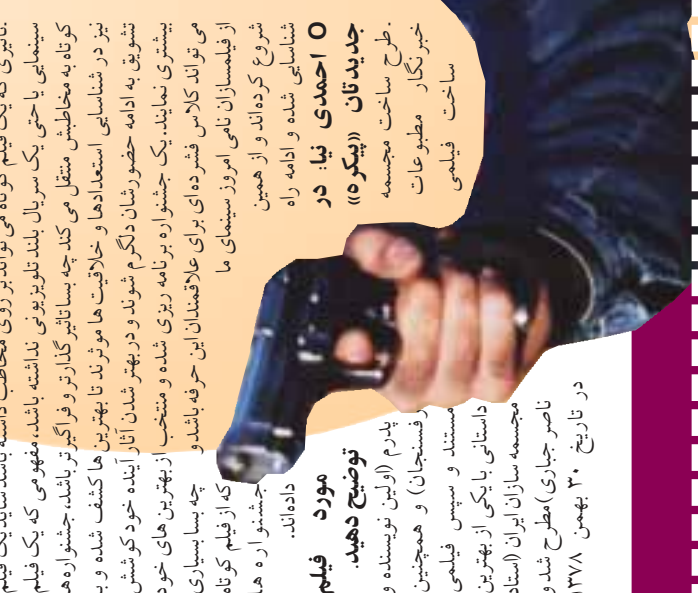 تاثیری که یک فیلم کوتاه می تواند بر روی مخاطب داشته باشد شاید یک فیلم
سینمایی یا حتی یک سریال بلند تلویزیونی نداشته باشد، مفهومی که یک فیلم
کوتاه به مخاطبش منتقل می کند چه بسا تاثیر گذارتر و فراگیرتر باشد، جشنواره ها
نیز در شناسایی استعدادها و خلاقیت ها موثرند تا بهترین ها کشف شده و با
تشویق به ادامه حضورشان دلگرم شوند و در بهتر شدن آثار آینده خود کوشش
بیشتری نمایند. یک جشنواره برنامه ریزی شده و منتخب از بهترین های خود
می تواند کلاس فشرده ای برای علاقمندان این حرفه باشد و چه بسا بسیاری
از فیلمسازان نامی امروز سینمای ما که از فیلم کوتاه
شروع کرده اند و از همین جشنواره ها
شناسایی شده و ادامه راه داده اند.
O احمدی نیا: در مورد فیلم
جدیدتان «پیکره» توضیح دهید.
. طرح ساخت مجسمه پدرم (اولین نویسنده و
خبرنگار مطبوعات رفسنجان) و همچنین
ساخت فیلمی مستند و سپس فیلمی
داستانی با یکی از بهترین
مجسمه سازان ایران (استاد
ناصر جباری) مطرح شد و
در تاریخ ۳۰ بهمن ۱۳۷۸